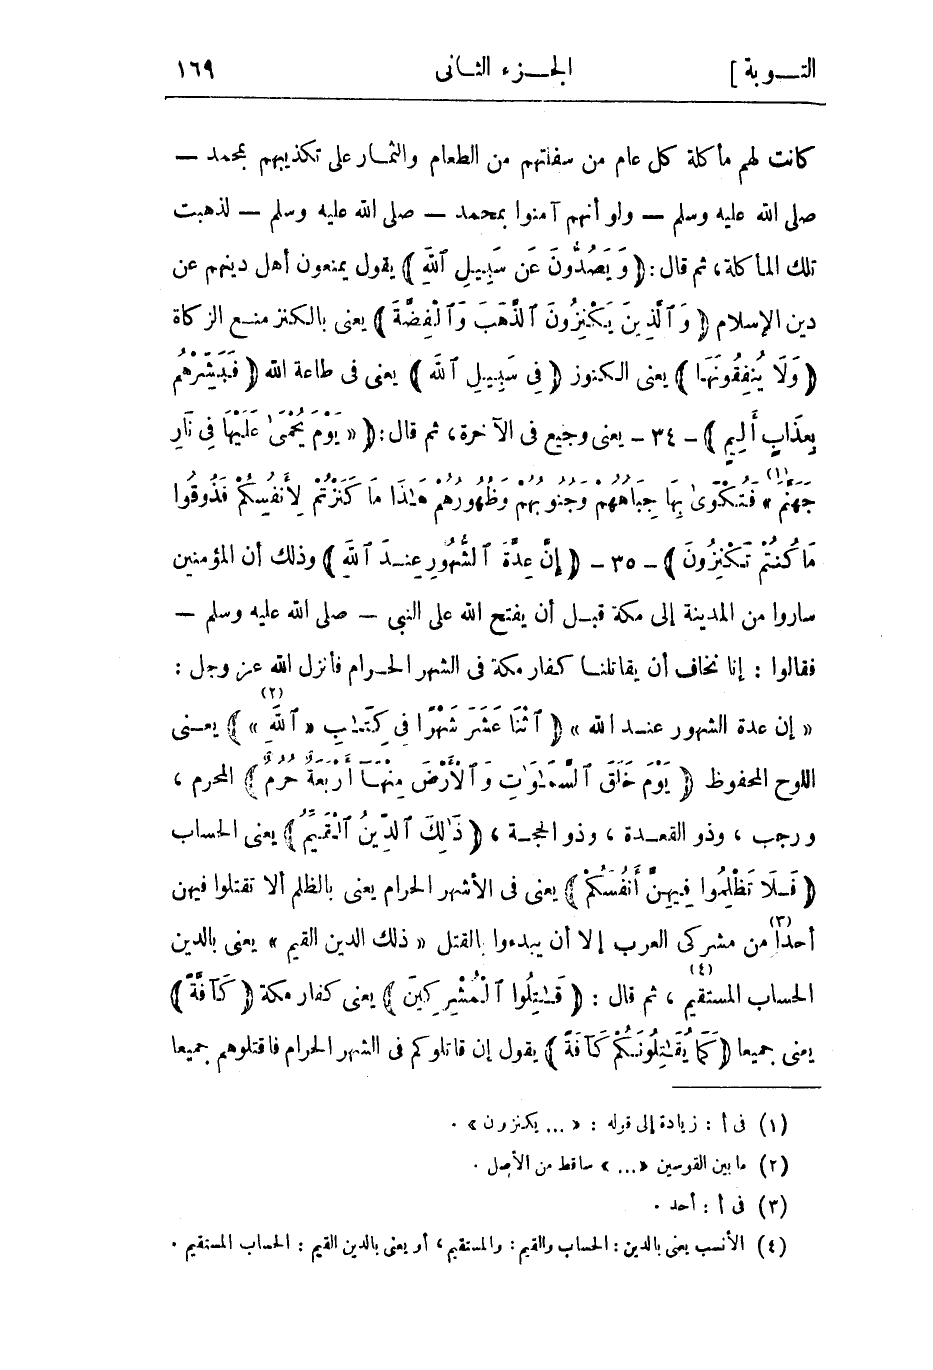 التـــوبة ]
الجـــزء الثـانى
١٦٩
كانت لهم مأكلة كل عام من سفلتهم من الطعام والثمـار على تكذيبهم بمحمد —
صلى الله عليه وسلم — ولو أنهم آمنوا بمحمد — صلى الله عليه وسلم — لذهبت
تلك المأكلة، ثم قال: ﴿ وَيَصُدُّونَ عَن سَبِيلِ ٱللَّهِ ﴾ يقول يمنعون أهل دينهم عن
دين الإسلام ﴿ وَٱلَّذِينَ يَكْنِزُونَ ٱلذَّهَبَ وَٱلْفِضَّةَ ﴾ يعنى بالكنز منـع الزكاة
﴿ وَلَا يُنفِقُونَهَا ﴾ يعنى الكنوز ﴿ فِى سَبِيلِ ٱللَّهِ ﴾ يعنى فى طاعة الله ﴿ فَبَشِّرْهُم
بِعَذَابٍ أَلِيمٍ ﴾ - ٣٤ - يعنى وجيع فى الآخرة، ثم قال: ﴿ « يَوْمَ يُحْمَىٰ عَلَيْهَا فِى نَارِ
جَهَنَّمَ »(١) فَتُكْوَىٰ بِهَا جِبَاهُهُمْ وَجُنُوبُهُمْ وَظُهُورُهُمْ هَـٰذَا مَا كَنَزْتُمْ لِأَنفُسِكُمْ فَذُوقُوا
مَا كُنتُمْ تَكْنِزُونَ ﴾ - ٣٥ - ﴿ إِنَّ عِدَّةَ ٱلشُّهُورِ عِنـدَ ٱللَّهِ ﴾ وذلك أن المؤمنين
ساروا من المدينة إلى مكة قبـل أن يفتح الله على النبى — صلى الله عليه وسلم —
فقالوا : إنا نخاف أن يقاتلنـا كفار مكة فى الشهر الحـرام فأنزل الله عز وجل :
« إن عدة الشهور عنـد الله » ﴿ ٱثْنَا عَشَرَ شَهْرًا فِى كِتَـٰبِ « ٱللَّهِ »(٢) ﴾ يعـنى
اللوح المحفوظ ﴿ يَوْمَ خَلَقَ ٱلسَّمَـٰوَٰتِ وَٱلْأَرْضَ مِنْهَـآ أَرْبَعَةٌ حُرُمٌ ﴾ المحرم ،
ورجب ، وذو القعـدة ، وذو الحجـة ، ﴿ ذَٰلِكَ ٱلدِّينُ ٱلْقَيِّمُ ﴾ يعنى الحساب
﴿ فَـلَا تَظْلِمُوا فِيهِنَّ أَنفُسَكُمْ ﴾ يعنى فى الأشهر الحرام يعنى بالظلم ألا تقتلوا فيهن
أحدًا(٣) من مشركى العرب إلا أن يبدءوا بالقتل « ذلك الدين القيم » يعنى بالدين
الحساب المستقيم(٤) ، ثم قال : ﴿ قَـٰتِلُوا ٱلْمُشْرِكِينَ ﴾ يعنى كفار مكة ﴿ كَآفَّةً ﴾
يعنى جميعا ﴿ كَمَا يُقَـٰتِلُونَكُمْ كَآفَةً ﴾ يقول إن قاتلوكم فى الشهر الحرام فاقتلوهم جميعا
(١) فى أ : زيادة إلى قوله : « ... يكنزون » .
(٢) ما بين القوسين « ... » ساقط من الأصل .
(٣) فى أ : أحد .
(٤) الأنسب يعنى بالدين : الحساب والقيم : والمستقيم، أو يعنى بالدين القيم : الحساب المستقيم .